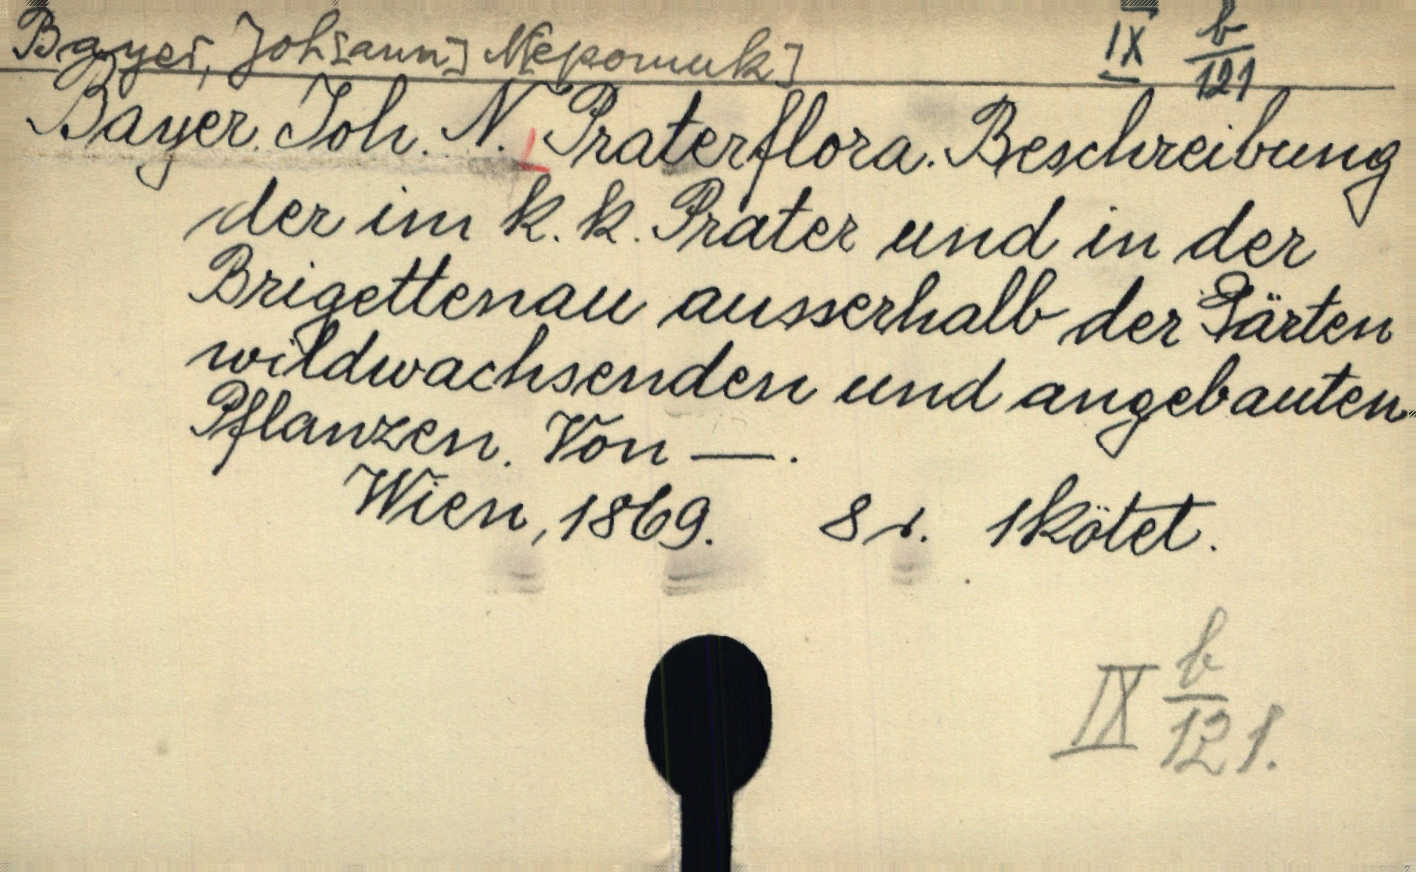 Bayer, Joh[ann] N[epomuk] IX b/121
Bayer. Joh. N. Praterflora. Beschreibung
der im k. k. Prater und in der
Brigettenau ausserhalb der Gärten
wildwachsenden und angebauten
Pflanzen. Von —.
Wien, 1869. 8 r. 1 kötet.
IX b/121.